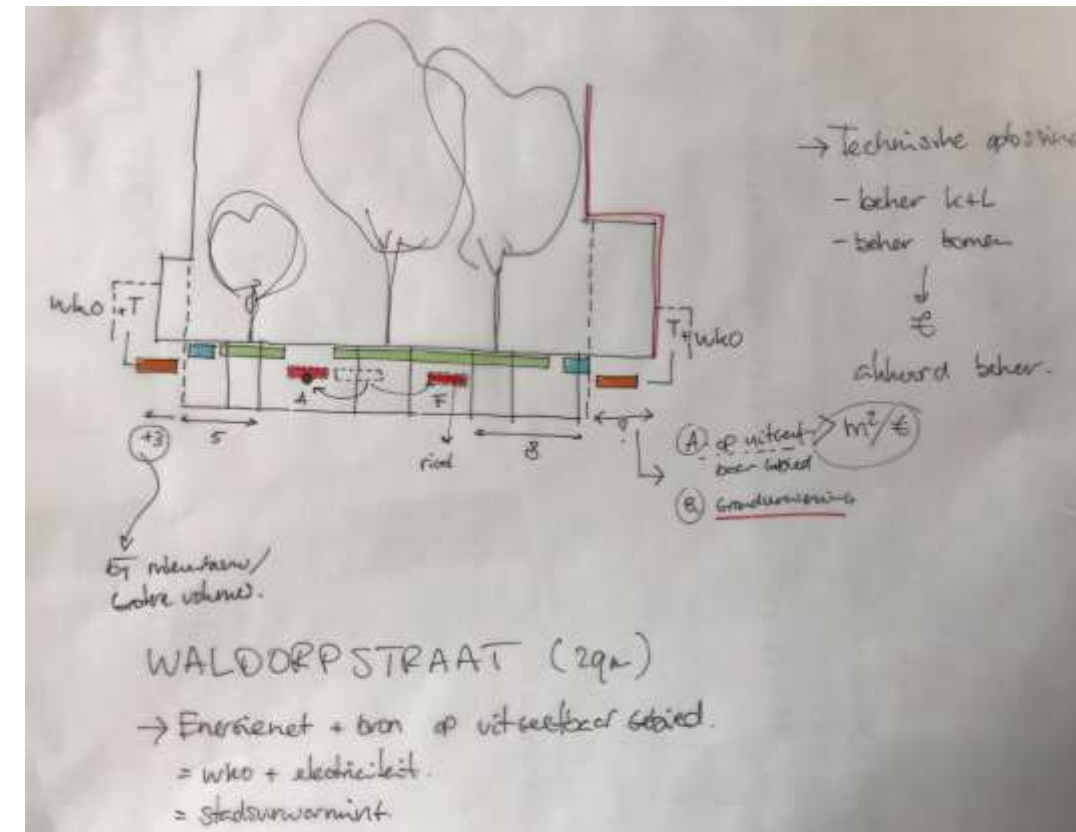 → Technische oplossing
- beheer k+L
- beheer bomen
€
akkoord beheer.
WKO +T
T + WKO
A
F
+3
5
riool
8
?
(A) op uitgeef-
baar gebied
m²/€
(B) Grondverwerving
WALDORPSTRAAT (29m)
→ Energienet + bron op uitgeefbaar gebied.
= WKO + electriciteit.
= Stadsverwarming.